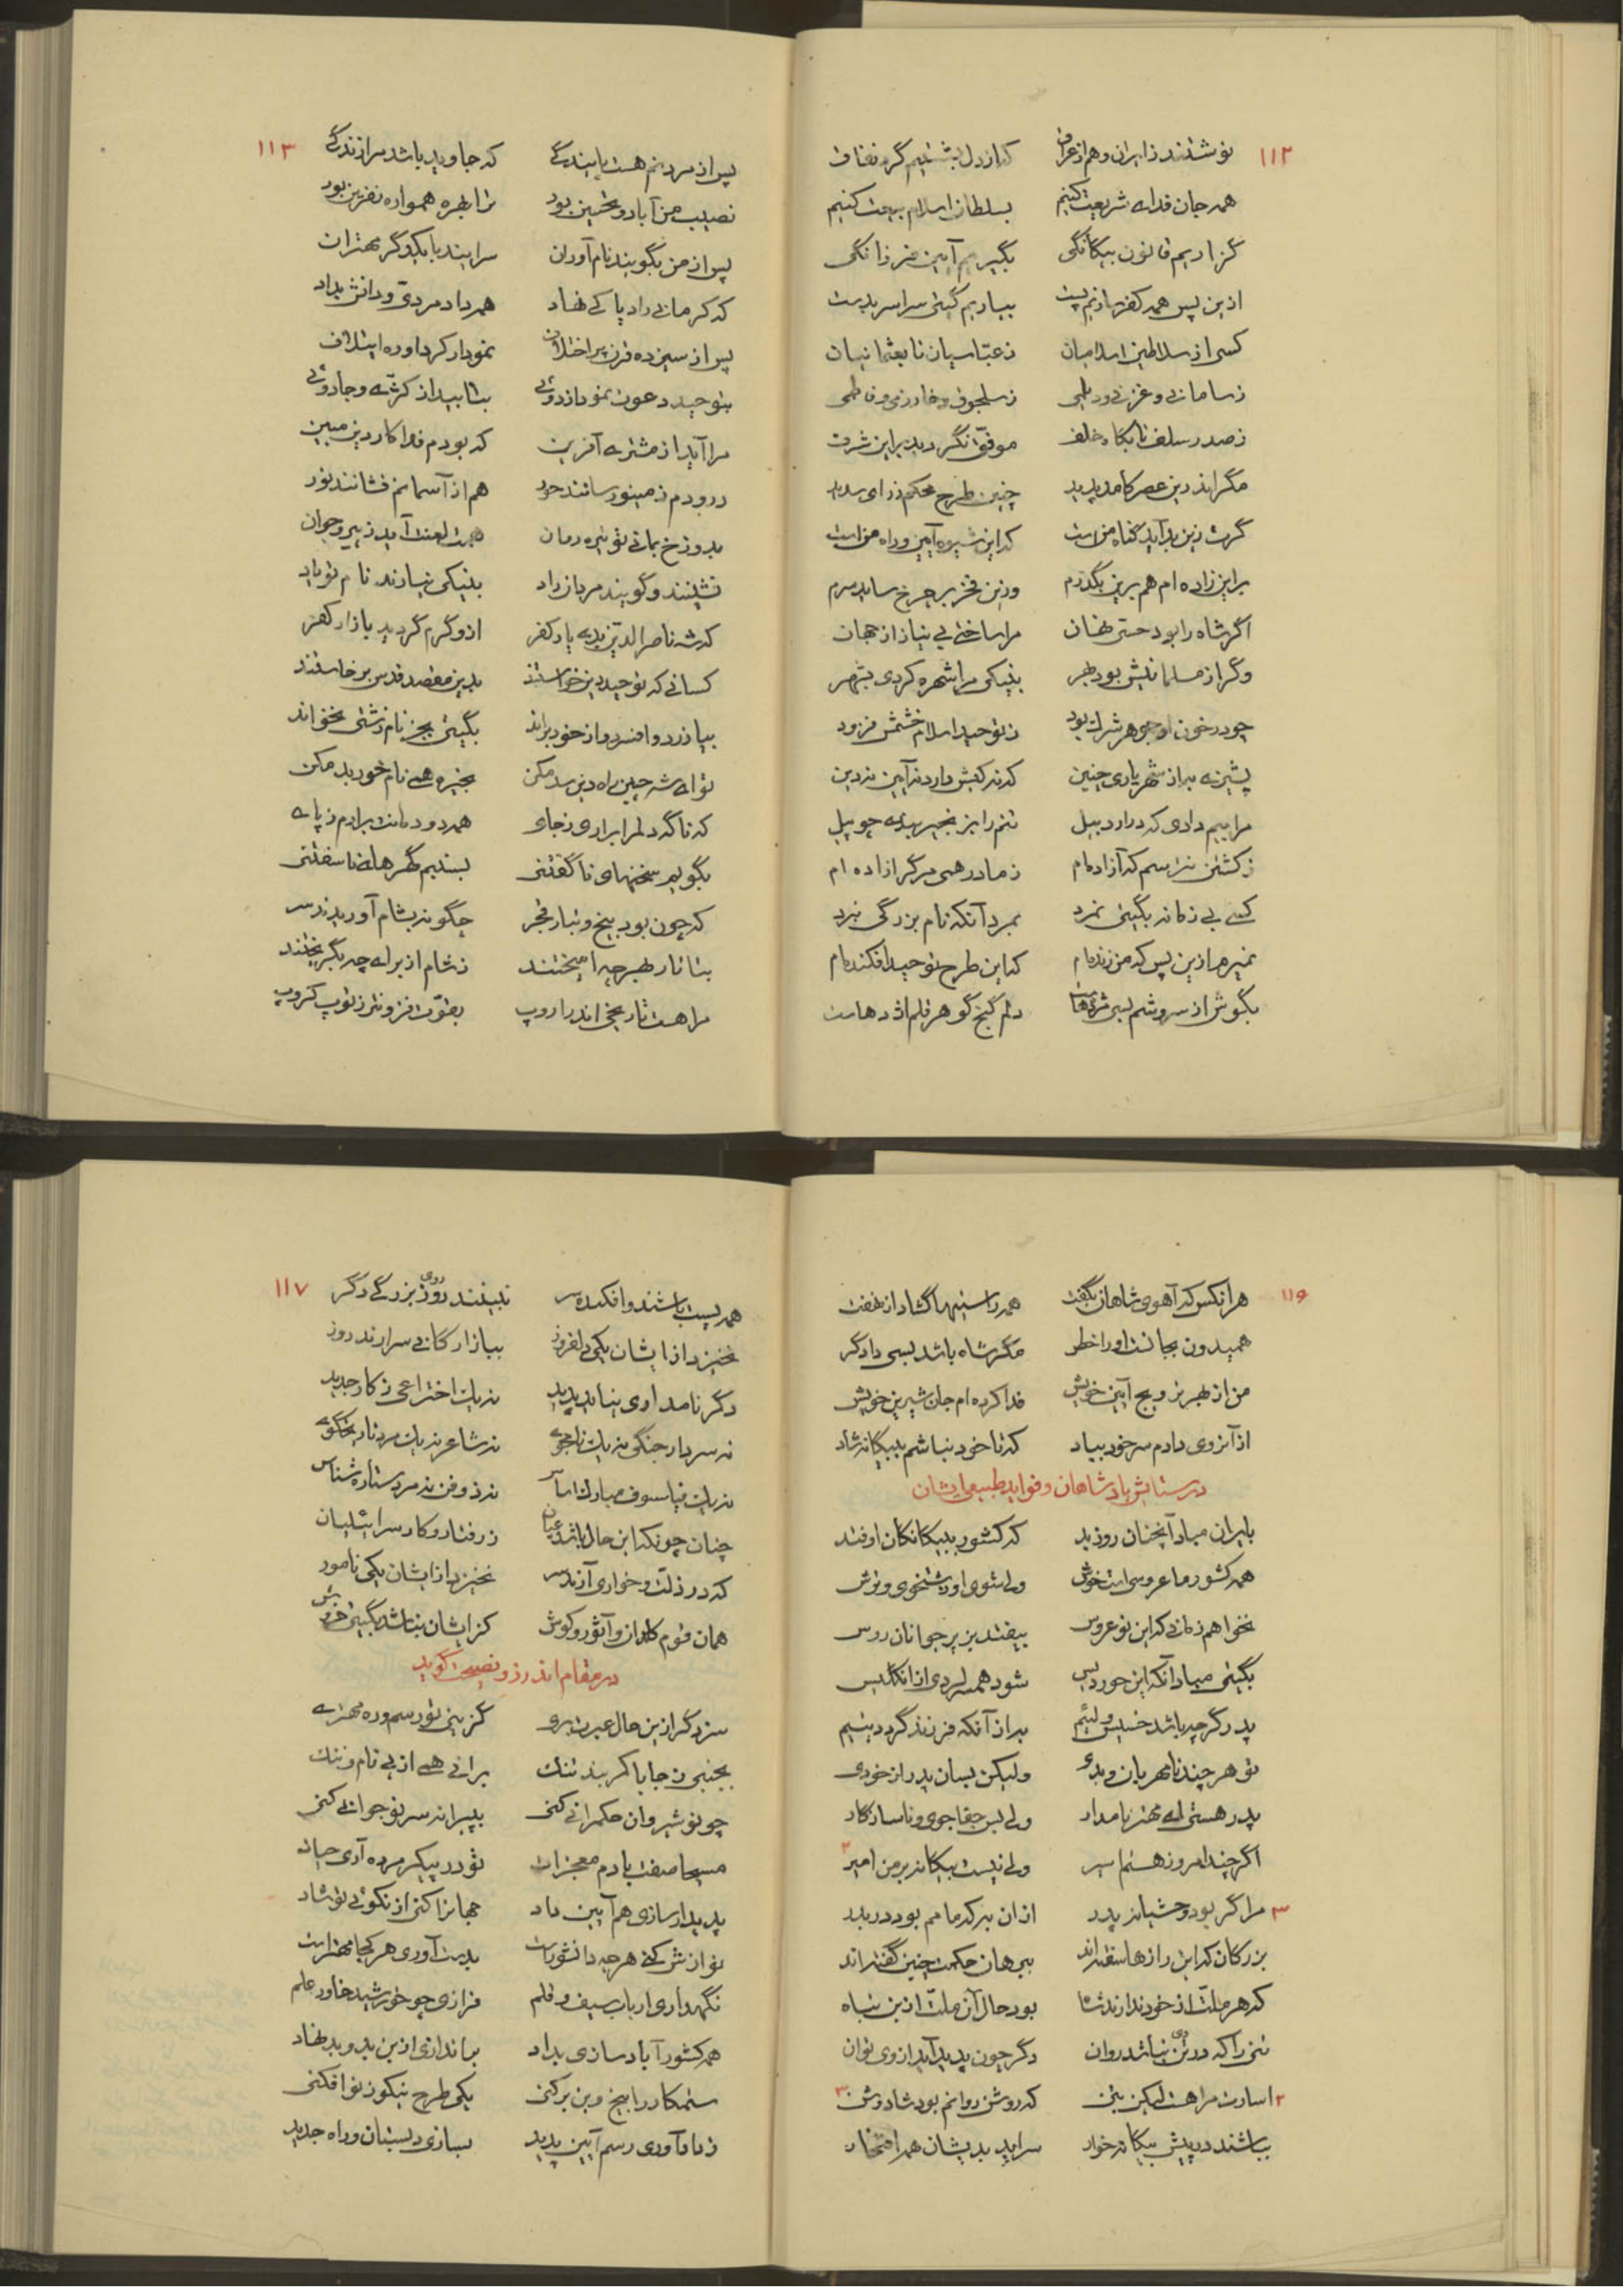 ۱۱۲
نوشتند ز ایران و هم از عراق که از دل بشستیم گرد نفاق
همه جان فدای شریعت کنیم بسلطان اسلام بیعت کنیم
گزاریم قانون بیگانگی بگیریم آیین فرزانگی
ازین پس همه کفر سازیم پست بیاریم گیتی سراسر بدست
کسی از سلاطین اسلامیان ز عباسیان تا بعثمانیان
ز سامانی و غزنوی و دیلمی ز سلجوق و خوارزمی و فاطمی
ز صدر سلف تا بگاه خلف موفق نگردید بر این شرف
مگر اندرین عصر کامد پدید چنین طرح محکم ز رای سدید
گرت زین بد آید گناه من است که این شیوه آیین و راه من است
بر این زاده ام هم برین بگذرم وزین فخر بر چرخ ساید سرم
اگر شاه را بود حسی نهان مرا ساختی بی نیاز از جهان
وگر از مسلمانیش بود بهر بنیکی مرا شهره کردی بشهر
چو در خون او جوهر شرک بود ز توحید اسلام خشمش فزود
پشیزی به از شهریاری چنین که نه کیش دارد نه آیین نه دین
مرا بیم دادی که در اردبیل تنم را بزنجیر بندی چو پیل
ز کشتن نترسم که آزاده‌ام ز مادر همی مرگ را زاده ام
کسی بی زمانه بگیتی نمرد بمرد آنکه نام بزرگی نبرد
نمیرم ازین پس که من زنده‌ام که این طرح توحید افکنده‌ام
بگوش از سروشم بسی مژدهاست دلم گنج گوهر قلم اژدهاست
۱۱۳
پس از مردنم هست پایندگی که جاوید باشد مرا زندگی
نصیب من آباد و تحسین بود ترا بهره همواره نفرین بود
پس از من بگویند نام آوران سرایند با یکدگر مهتران
که کرمانی راد پاکی نهاد همه داد مردی و دانش بداد
پس از سیزده قرن پر اختلاف نمودار کرد او ره ایتلاف
بتوحید دعوت نمود از دوئی بتابید از کژی و جادوئی
مرا آید از مشتری آفرین که بودم فداکار دین مبین
درودم ز مینو رسانند حور هم از آسمانم فشانند نور
بدوزخ بمانی تو تیره روان همت لعنت آید ز پیر و جوان
نشینند و گویند مردان راد بنیکی نیارند نام تو یاد
که شه ناصرالدین بدی یار کفر ازو گرم گردید بازار کفر
کسانی که توحید دین خواستند بدین مقصد قدس برخاستند
بیازرد و افسرد و از خود براند بگیتی بجز نام زشتی نخواند
تو ای شه چنین راه دین سد مکن بخیره همی نام خود بد مکن
که ناگه دلم را براری ز جای همه دودمانت برارم ز پای
بگویم سخنهای ناگفتنی بسنبم گهرهای ناسفتنی
که چون بود بیخ و تبار قجر چگونه بشام آوریدند سر
بتاتار بهر چه امیختند ز شام از برای چه بگریختند
مرا هست تاریخی اندر اروپ بقوت فزونتر ز توپ کروپ
۱۱۶
هر انکس که آهوی شاهان بگفت همه راستیها گشاد از نهفت
همیدون بجانست او را خطر مگر شاه باشد بسی دادگر
من از بهر ترویج آیین خویش فدا کرده ام جان شیرین خویش
از آنروی دادم سر خود بباد که تا خود نباشم ببیگانه شاد
در ستایش پادشاهان و فواید طبیعی ایشان
بایران مباد آنچنان روز بد که کشور ببیگانگان اوفتد
همه کشور ما عروسی است خوش ولی شوی او زشتخوی و ترش
نخواهم زمانی که این نو عروس بیفتد بزیر جوانان روس
بگیتی مباد آنکه این حور دیس شود همسر لردی از انگلیس
پدر گرچه باشد خسیس و لئیم به از آنکه فرزند گردد یتیم
تو هر چند نامهربان و بدی ولیکن بسان پدر از خودی
پدر هستی ای مهتر نامدار ولی بس جفاجوی و ناسازگار
اگر چند امروز هستم اسیر ولی نیست بیگانه بر من امیر ۲
۳ مرا گر بود وحشیانه پدر از آن به که مامم بود در بدر
بزرگان که این رازها سفته‌اند ببرهان حکمت چنین گفته‌اند
که هر ملت از خود ندارند شاه بود حال آن ملت ازین تباه
تنی را که در وی نباشد روان دگر چون پدید آید از وی توان
۲ اسارت مرا هست لیکن بتن که روشن روانم بود شاد و تن ۳
بباشند در پیش بیگانه خوار سراید بدیشان همه افتخار
۱۱۷
همه پست باشند و افکنده سر نبینند روی بزرگی دگر
نخیزد از ایشان یکی دلفروز ببازارگانی سرارند روز
دگر نامداری نیاید پدید نه یک اختراعی ز کار جدید
نه سردار جنگی نه یک تاجوی نه شاعر نه یک مرد تاریخگوی
نه یک فیلسوف مبارک اساس نه ذوفن نه مرد ستاره شناس
چنان چونکه این حال باشد عیان ز رفتار و کار سرائیلیان
که در ذلت و خواری آرند سر نخیزد از ایشان یکی نامور
همان قوم کلدان و آثور و کوش کزایشان نباشد بگیتی خروش
در مقام اندرز و نصیحت گوید
سزد گر ازین حال عبرت بری گزینی تو رسم و ره مهتری
بجنبی ز جا با کمربند تنگ برانی همی از پی نام و ننگ
چو نوشیروان حکمرانی کنی به پیرانه سر نوجوانی کنی
مسیحا صفت با دم معجزات تو در پیکر مرده آری حیات
پدیدار سازی هم آیین داد جهانرا کنی از نکوئی تو شاد
نوازش کنی هر چه دانشورست بدست آوری هر کجا مهترست
نگهداری ارباب سیف و قلم فرازی چو خورشید خاور علم
همه کشور آباد سازی بداد براندازی از بن بد و بد نهاد
ستمکار را بیخ و بن برکنی یکی طرح نیکو ز نو افکنی
ز داد آوری رسم آیین پدید بسازی دبستان و راه جدید